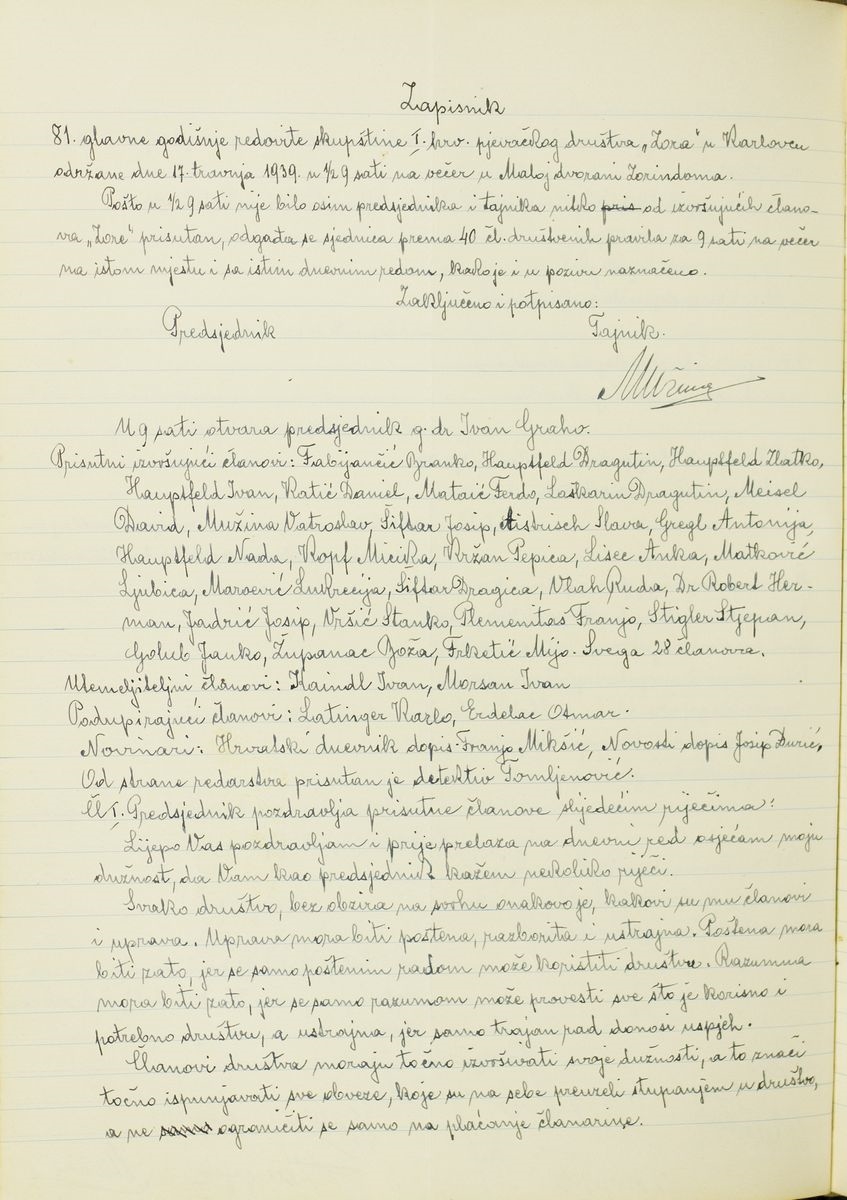 Zapisnik
81. glavne godišnje redovite skupštine I. hrv. pjevačkog društva „Zora" u Karlovcu
održane dne 17. travnja 1939. u ½ 9 sati na večer u Maloj dvorani Zorindoma.
Pošto u ½ 9 sati nije bilo osim predsjednika i tajnika nitko pris od izvršujućih člano-
va „Zore" prisutan, odgađa se sjednica prema 40 čl. društvenih pravila za 9 sati na večer
na istom mjestu i sa istim dnevnim redom, kako je i u pozivu naznačeno.
Zaključeno i potpisano:
Predsjednik Tajnik.
Mužina
U 9 sati otvara predsjednik g. dr Ivan Graho.
Prisutni izvršujući članovi: Fabijančić Branko, Hauptfeld Dragutin, Hauptfeld Zlatko,
Hauptfeld Ivan, Katić Daniel, Mataić Ferdo, Laškarin Dragutin, Meisel
David, Mužina Vatroslav, Šiftar Josip, Slava, Gregl Antonija,
Hauptfeld Nada, Kopf Micika, Kržan Pepica, Lisec Anka, Matković
Ljubica, Maroević Lukrecija, Šiftar Dragica, Vlah Ruda, Dr Robert Her-
man, Jadrić Josip, Vršić Stanko, Plemenitaš Franjo, Stigler Stjepan,
Golub Janko, Županac Boža, Frketić Mijo. Svega 28 članova.
Utemeljiteljni članovi: Kaindl Ivan, Morsan Ivan
Podupirajući članovi: Latinger Karlo, Erdelac Otmar.
Novinari: Hrvatski dnevnik dopis. Franjo Mikšić, Novosti dopis Josip Durić,
Od strane redarstva prisutan je detektiv Tomljenović.
Čl I. Predsjednik pozdravlja prisutne članove slijedećim riječima:
Lijepo Vas pozdravljam i prije prelaza na dnevni red osjećam moju
dužnost, da Vam kao predsjednik kažem nekoliko riječi.
Svako društvo, bez obzira na svrhu onakovo je, kakovi su mu članovi
i uprava. Uprava mora biti poštena, razborita i ustrajna. Poštena mora
biti zato, jer se samo poštenim radom može koristiti društvu. Razumna
mora biti zato, jer se samo razumom može provesti sve što je korisno i
potrebno društvu, a ustrajna, jer samo trajan rad donosi uspjeh.
Članovi društva moraju točno izvršivati svoje dužnosti, a to znači
točno ispunjavati sve obveze, koje su na sebe preuzeli stupanjem u društvo,
a ne samo ograničiti se samo na plaćanje članarine.